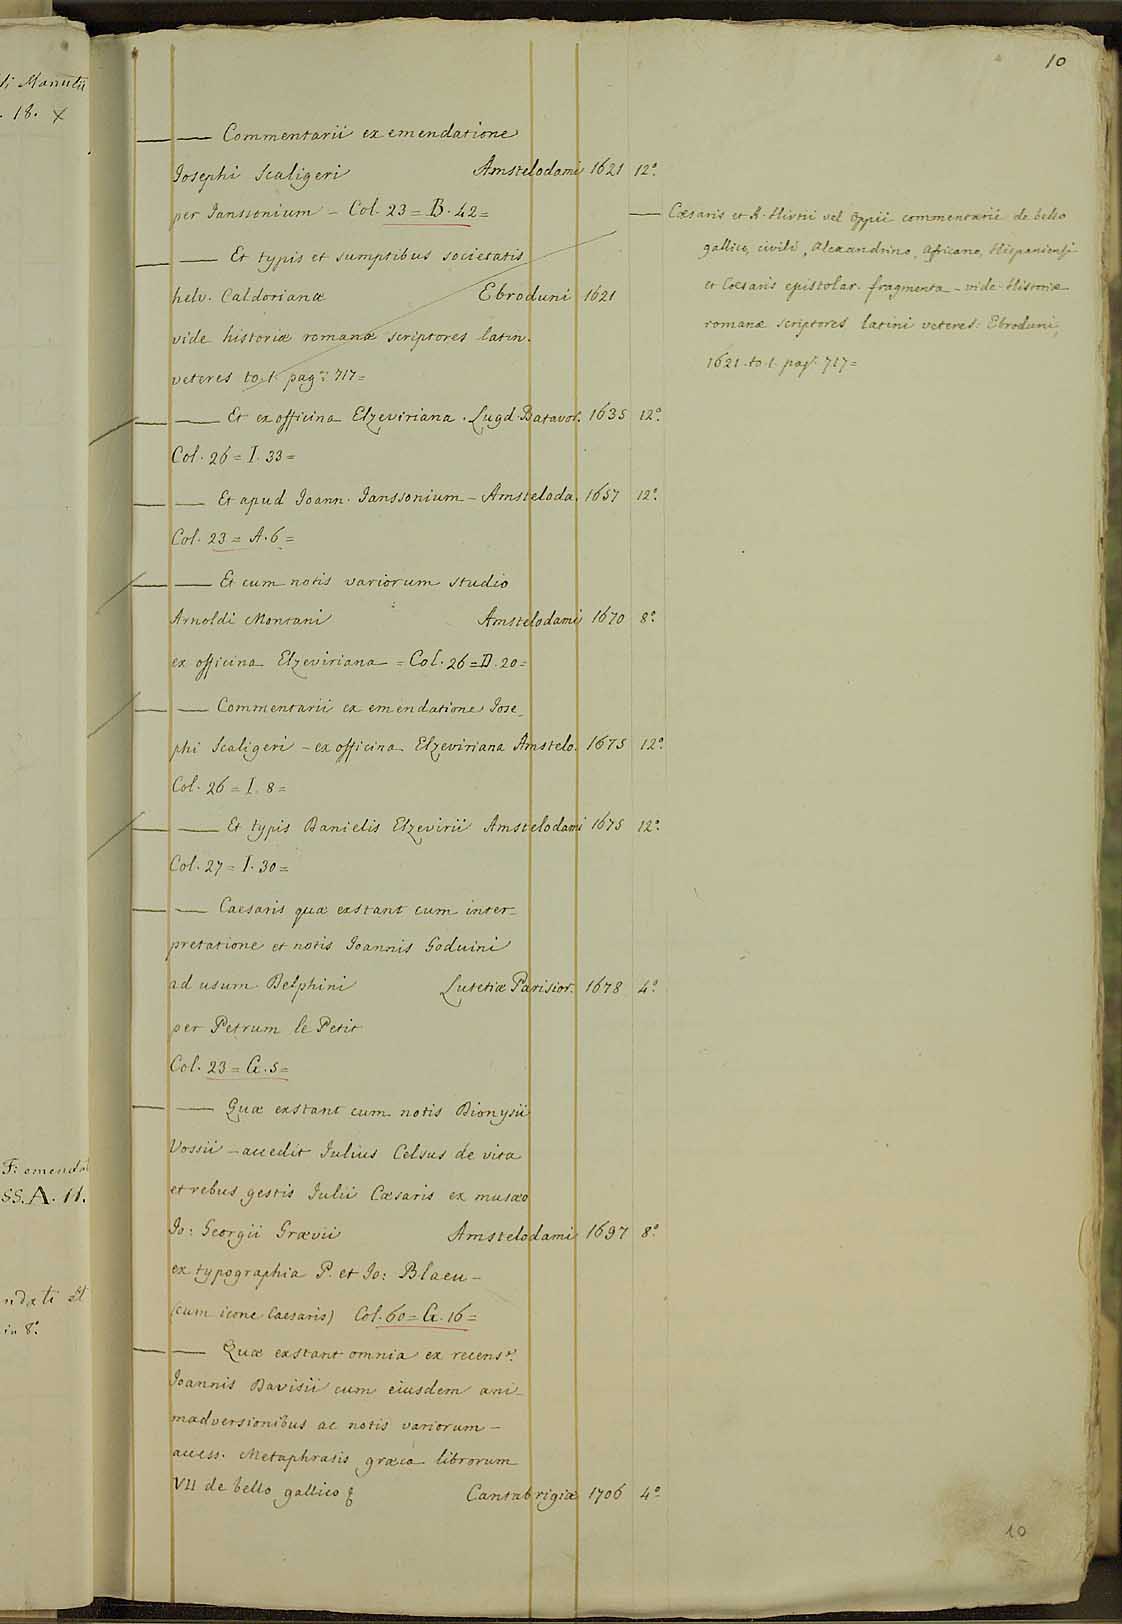 10
—— Commentarii ex emendatione
Josephi Scaligeri Amstelodami 1621 12.º
per Janssonium - Col. 23 = B. 42 =
—— Et typis et sumptibus societatis
helv. Caldorianæ Ebroduni 1621
vide historiæ romanæ scriptores latin.
veteres to. 1. pag. 717 =
—— Et ex officina Elzeviriana. Lugd. Batavor. 1635 12.º
Col. 26 = I. 33 =
—— Et apud Joann. Janssonium - Amsteloda. 1657 12.º
Col. 23 = A. 6 =
—— Et cum notis variorum studio
Arnoldi Montani Amstelodami 1670 8.º
ex officina Elzeviriana = Col. 26 = D. 20 =
—— Commentarii ex emendatione Jose_
phi Scaligeri - ex officina Elzeviriana Amstelo. 1675 12.º
Col. 26 = I. 8 =
—— Et typis Danielis Elzevirii Amstelodami 1675 12.º
Col. 27 = I. 30 =
—— Caesaris quæ exstant cum inter_
pretatione et notis Joannis Goduini
ad usum Delphini Lutetiæ Parisior. 1678 4.º
per Petrum le Petit
Col. 23 = G. 5 =
—— Quæ exstant cum notis Dionysii
Vossii - accedit Julius Celsus de vita
et rebus gestis Julii Cæsaris ex musæo
Jo: Georgii Grævii Amstelodami 1697 8.º
ex typographia P. et Jo: Blaeu -
(cum icone Caesaris) Col. 60 = G. 16 =
—— Quæ exstant omnia ex recens.e
Joannis Davisii cum eiusdem ani_
madversionibus ac notis variorum -
access. Metaphrasis græca librorum
VII de bello gallico Cantabrigiæ 1706 4.º
—— Cæsaris et A. Hirtii vel Oppii commentarii de bello
gallico, civili, Alexandrino, Africano, Hispaniensi
et Cæsaris epistolar. fragmenta - vide Historiæ
romanæ scriptores latini veteres. Ebroduni,
1621. to. 1. pag. 717 =
10
Manutii
18. X
F: emendat
SS. A. 11.
ndati et
in 8.º